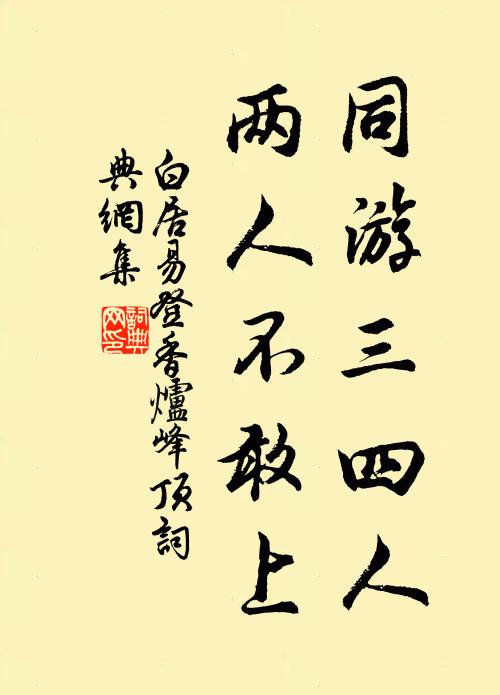 同游三四人
两人不敢上
白居易登香爐峰頂詞
典網集
詞典
网印